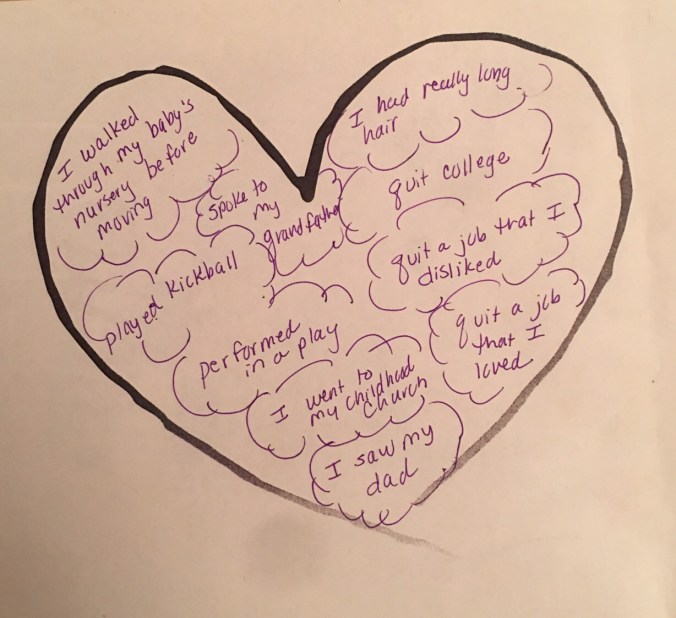 I walked
through my baby's
nursery before
moving
spoke to
my
grandfather
I had really long
hair
quit college
played kickball
quit a job that I
disliked
performed
in a play
quit a job
that I
loved
I went to
my childhood
church
I saw my
dad